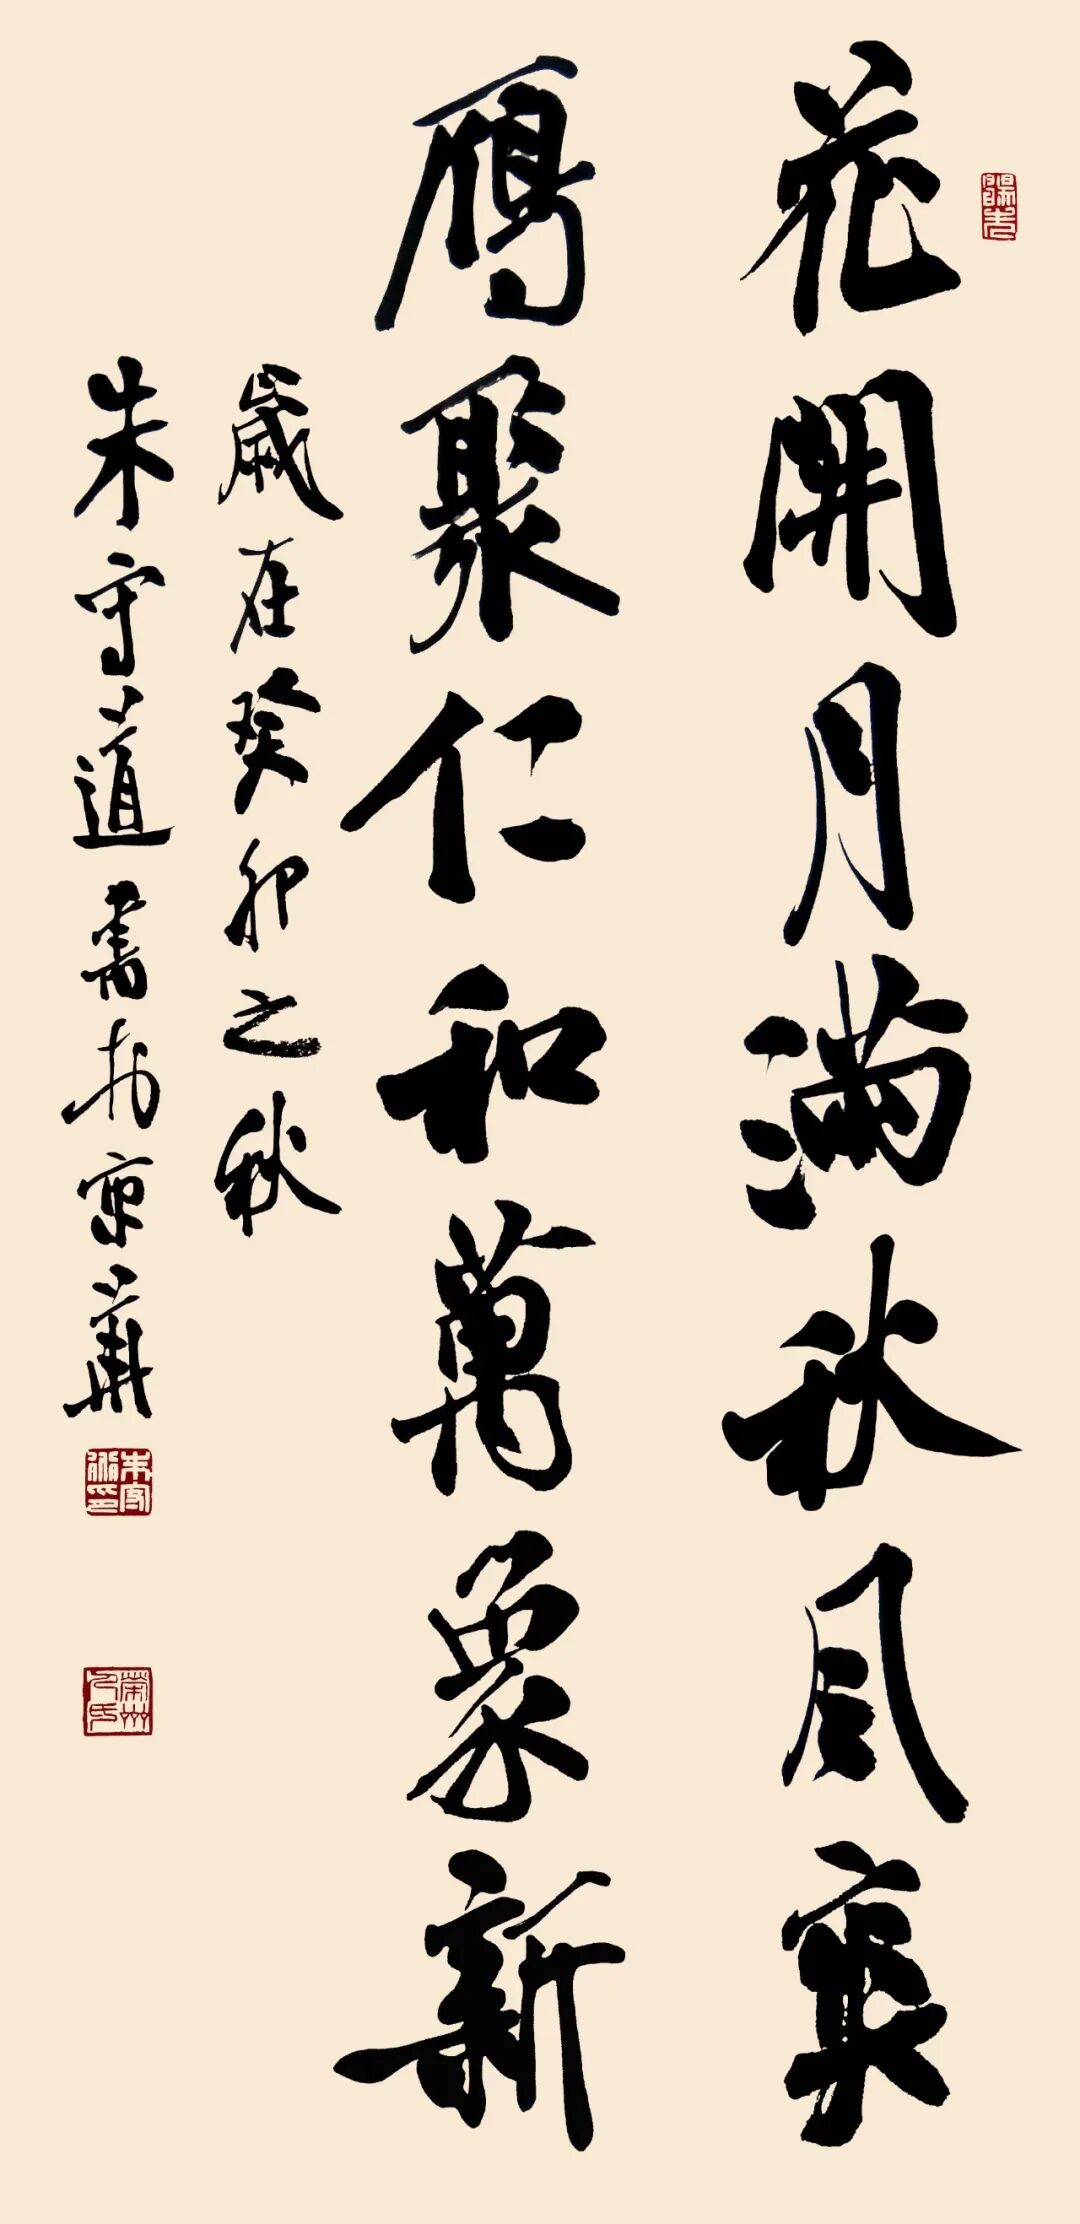 花開月滿秋風爽
鴈聚仁和萬象新
歲在癸卯之秋
朱守道書於京華
朱守道印